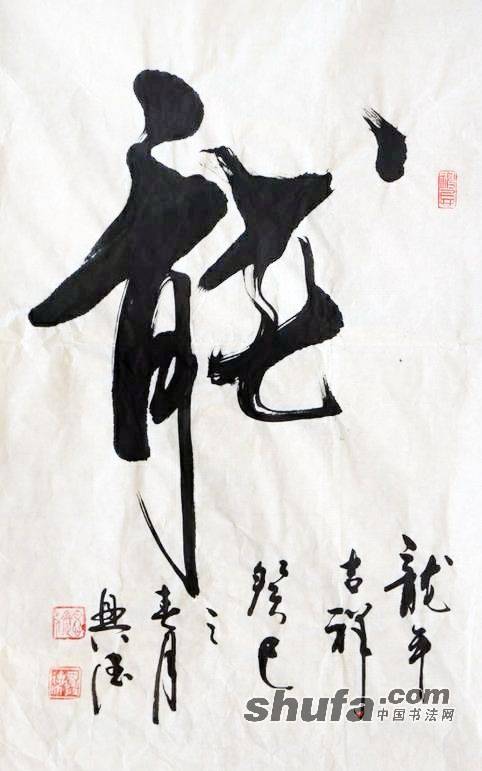 龍
龍年
吉祥
癸巳
之
春月
興德
shufa.com
中国书法网